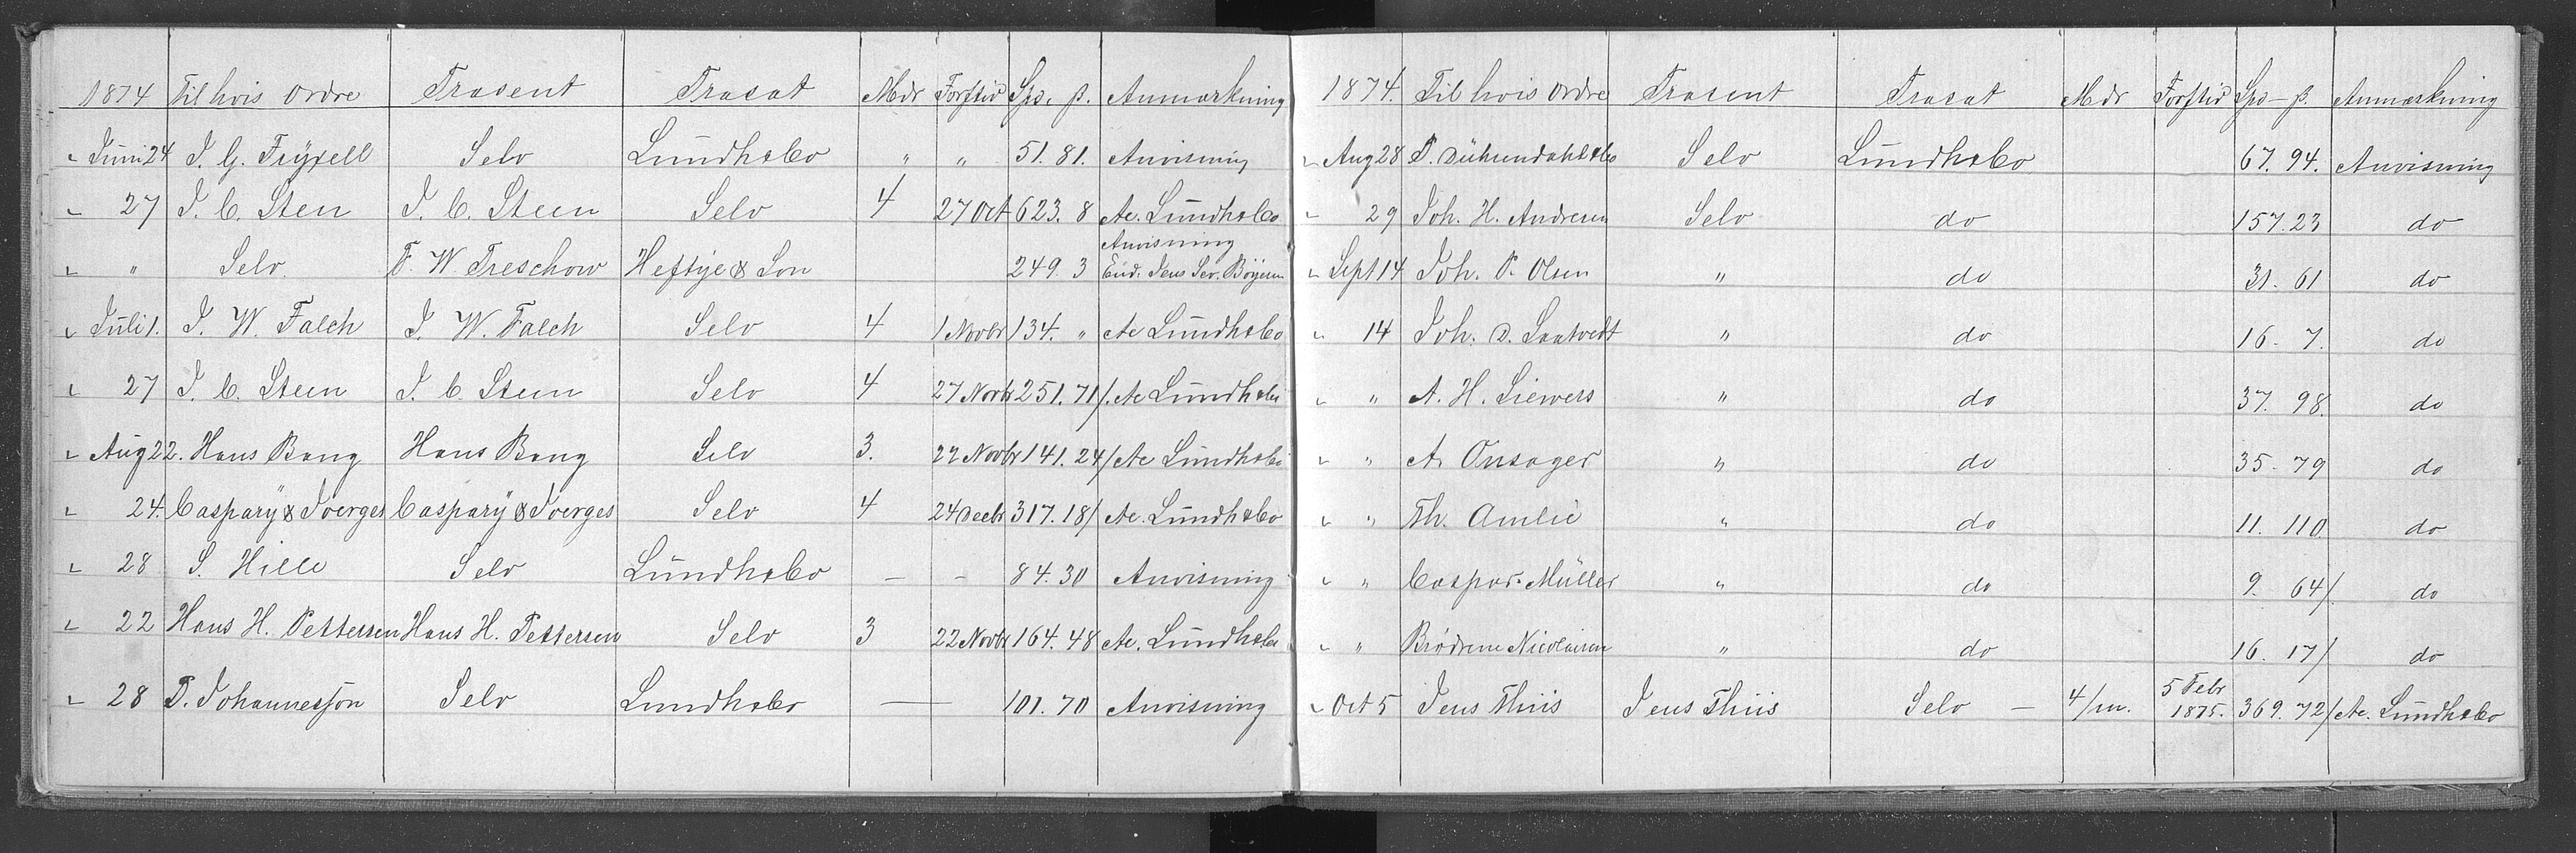 1874 Til hvis Ordre Trasent Trasat Mdr Forftid Sps. ß. Anmærkning
" Juni 24 J. G. Fryxell Selv Lundh & Co " " 51. 81. Anvisning
" 27 J. C. Steen J. C. Steen Selv 4 27 Oct 623. 8 Ac. Lundh & Co
" " Selv F. W. Treschow Heftye & Søn 249. 3 Anvisning
End. Jens Sev. Böyesen
" Juli 1. J. W. Falch J. W. Falch Selv 4 1 Novbr 134. " Ac Lundh & Co
" 27 J. C. Steen J. C. Steen Selv 4 27 Novbr 251. 71/. Ac Lundh & Co
" Aug 22. Hans Bang Hans Bang Selv 3. 22 Novbr 141. 24/ Ac Lundh & Co
" 24. Caspary & Joerges Caspary & Joerges Selv 4 24 Decbr 317. 18/ Ac. Lundh & Co
" 28 S. Hille Selv Lundh & Co — – 84. 30 Anvisning
" 22 Hans H. Pettersen Hans H. Pettersen Selv 3 22 Novbr 164. 48 Ac. Lundh & Co
" 28 P. Johannesson Selv Lundh & Co — 101. 70 Anvisning
1874. Til hvis Ordre Trasent Trasat Mdr Forftid Sps – ß. Anmærkning
" Aug 28 P. & Co Selv Lundh & Co 67. 94. Anvisning
" 29 Joh. H. Andresen Selv do 157. 23 do
" Sept 14 Joh. P. Olsen " do 31. 61 do
" 14 Joh. D. Saatvedt " do 16. 7. do
" " A. H. Siewers " do 37. 98. do
" " A. Onsager " do 35. 79 do
" " Th. Amlie " do 11. 110 do
" " Caspar Müller " do 9. 64/. do
" " Brödrene Nicolaisen " do 16. 17/ do
" Oct 5 Jens Thiis Jens Thiis Selv — 4/m. 5 Febr 1875. 369. 72/ Ac. Lundh & Co